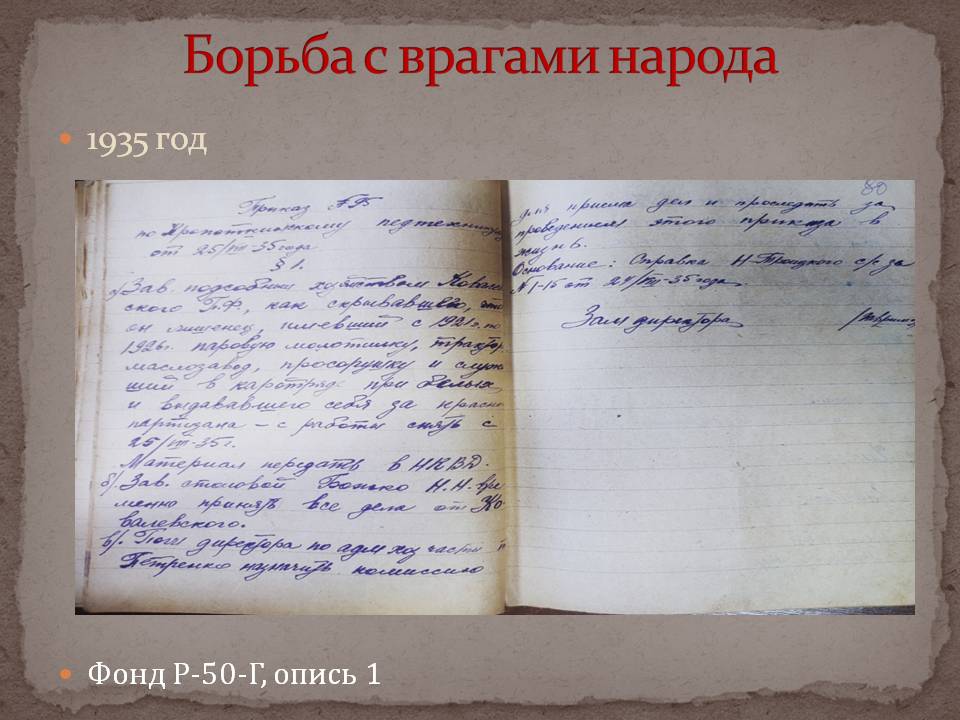 Борьба с врагами народа
1935 год
Приказ
по Кропоткинскому педтехникуму
от 25/VIII-35 года
§ 1.
а) Зав. подсобным хозяйством Ковалев
ского П.Ф, как скрывавшего, что
он лишенец, имевший с 1921 г. по
1926 г. паровую молотилку, трактор,
маслозавод, просорушку и служ
ший в каротряде при белых
и выдававшего себя за красно
партизана – с работы снять с
25/VIII-35 г.
Материал передать в НКВД.
б). Зав. столовой Бонько Н.Н. вре
менно принять все дела от Ко
валевского.
в). директора по адм хоз части
Петренко назначить комиссию
80
для приема дел и проследить за
проведением этого приказа в
жизнь.
Основание: Справка Н-Троицкого с/с за
№1-15 от 24/VIII-35 года.
Зам директора
Фонд Р-50-Г, опись 1